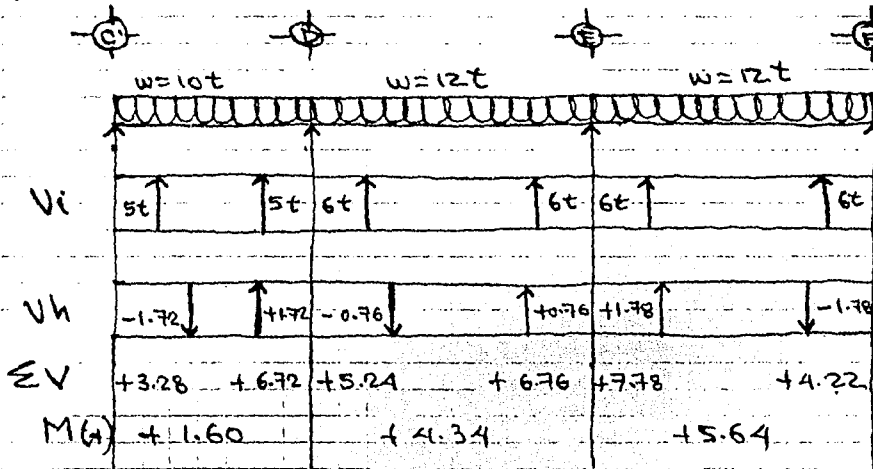 C' D E F
w=10t w=12t w=12t
Vi 5t 5t 6t 6t 6t 6t
Vh -1.72 +1.72 -0.76 +0.76 +1.78 -1.78
ΣV +3.28 +6.72 +5.24 +6.76 +7.78 +4.22
M(+) +1.60 +4.34 +5.64